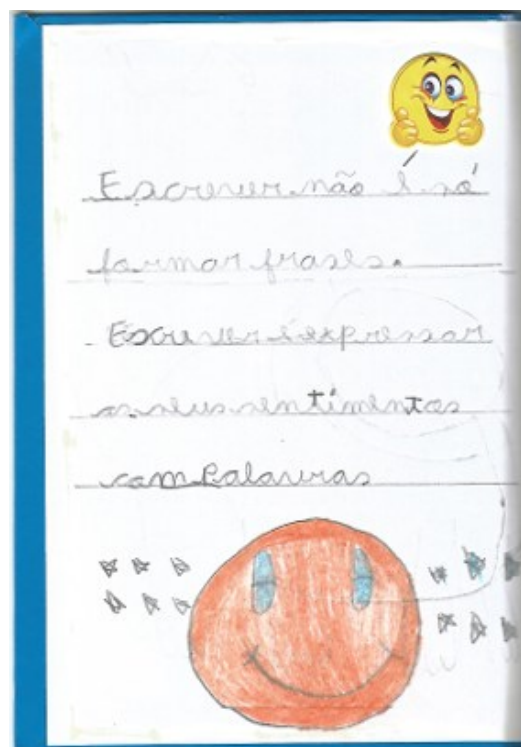 Escrever não é só
formar frases.
Escrever é expressar
os seus sentimentos
com Palavras